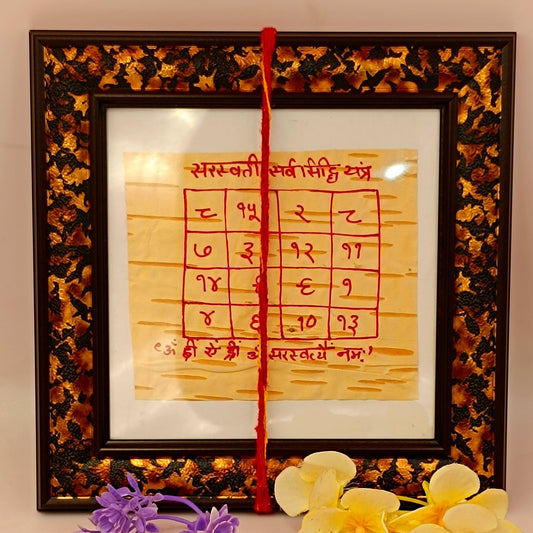 सरस्वती सर्व सिद्धि यंत्र
८ १५ २ ८
७ ३ १२ ११
१४ ६ १
४ ६ १० १३
“ॐ ह्रीं ऐं ह्रीं ॐ सरस्वत्यैं नमः”